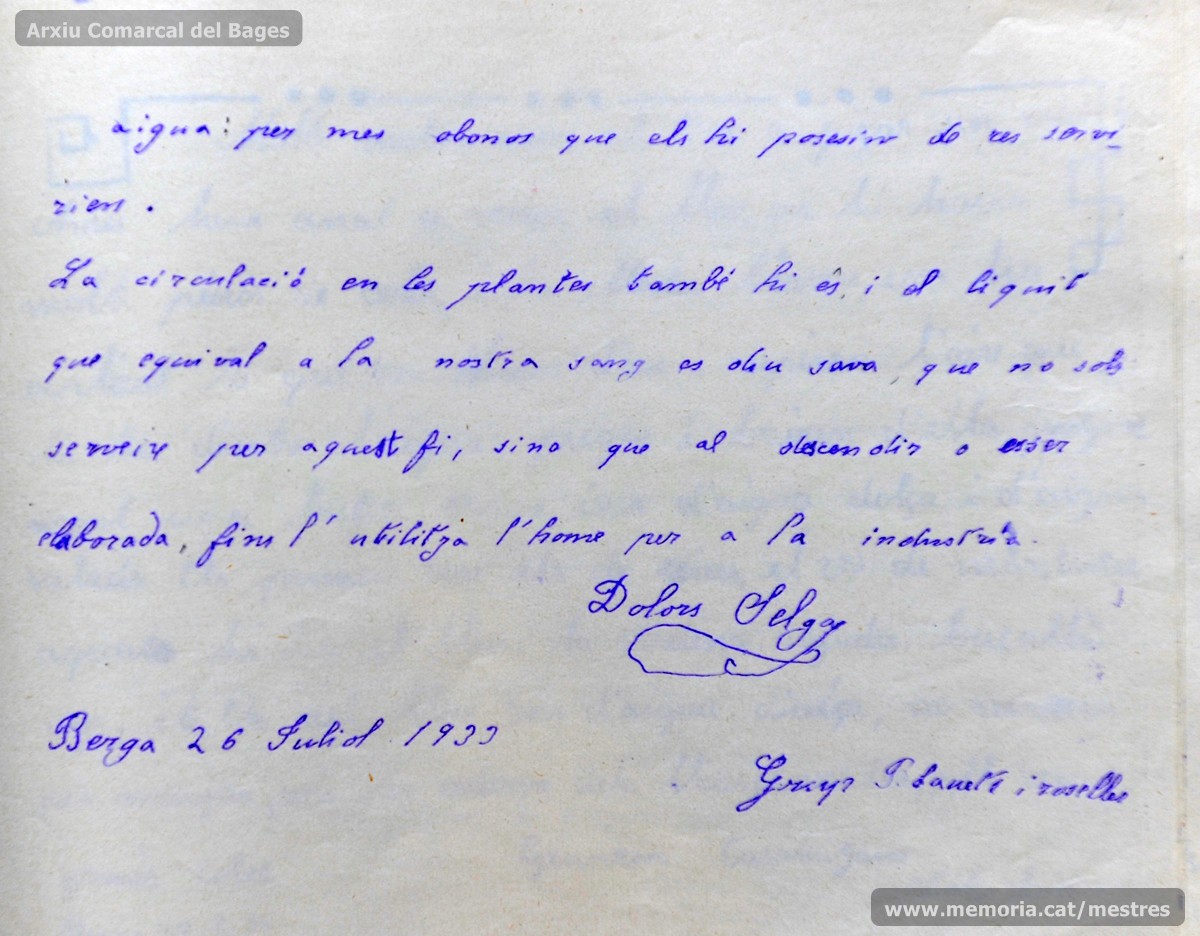 Arxiu Comarcal del Bages
aigua: per mes obonos que els hi posesim de res servi-
rien.
La circulació en les plantes també hi és, i el liquit
que equival a la nostra sang es diu sava, que no sols
serveix per aquest fi, sino que al descendir o esser
elaborada, fins l'utilitza l'home per a la industria.
Dolors Selga
Berga 26 Juliol 1933
Grup F. i roselles
www.memoria.cat/mestres